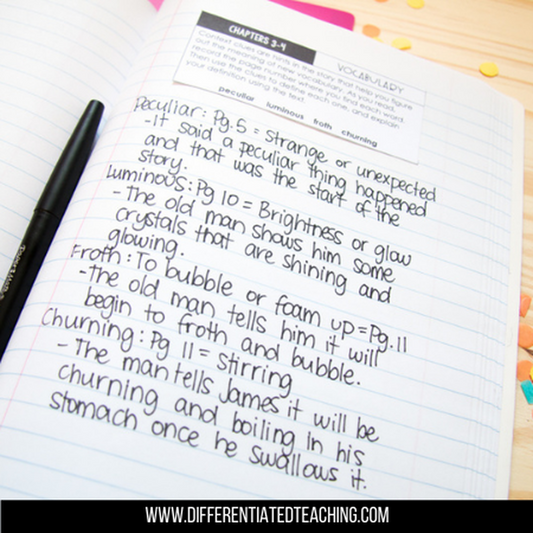 CHAPTERS 3-4
VOCABULARY
Context clues are hints in the story that help you figure
out the meaning of new vocabulary. As you read,
record the page number where you find each word.
Then use the clues to define each one, and explain
your definition using the text.
peculiar luminous froth churning
Peculiar: Pg. 5 = Strange or unexpected
-It said a peculiar thing happened
and that was the start of the
story.
Luminous: Pg 10 = Brightness or glow
-The old man shows him some
crystals that are shining and
glowing.
Froth: To bubble or foam up = Pg. 11
-The old man tells him it will
begin to froth and bubble.
Churning: Pg 11 = Stirring
- The man tells James it will be
churning and boiling in his
stomach once he swallows it.
WWW.DIFFERENTIATEDTEACHING.COM